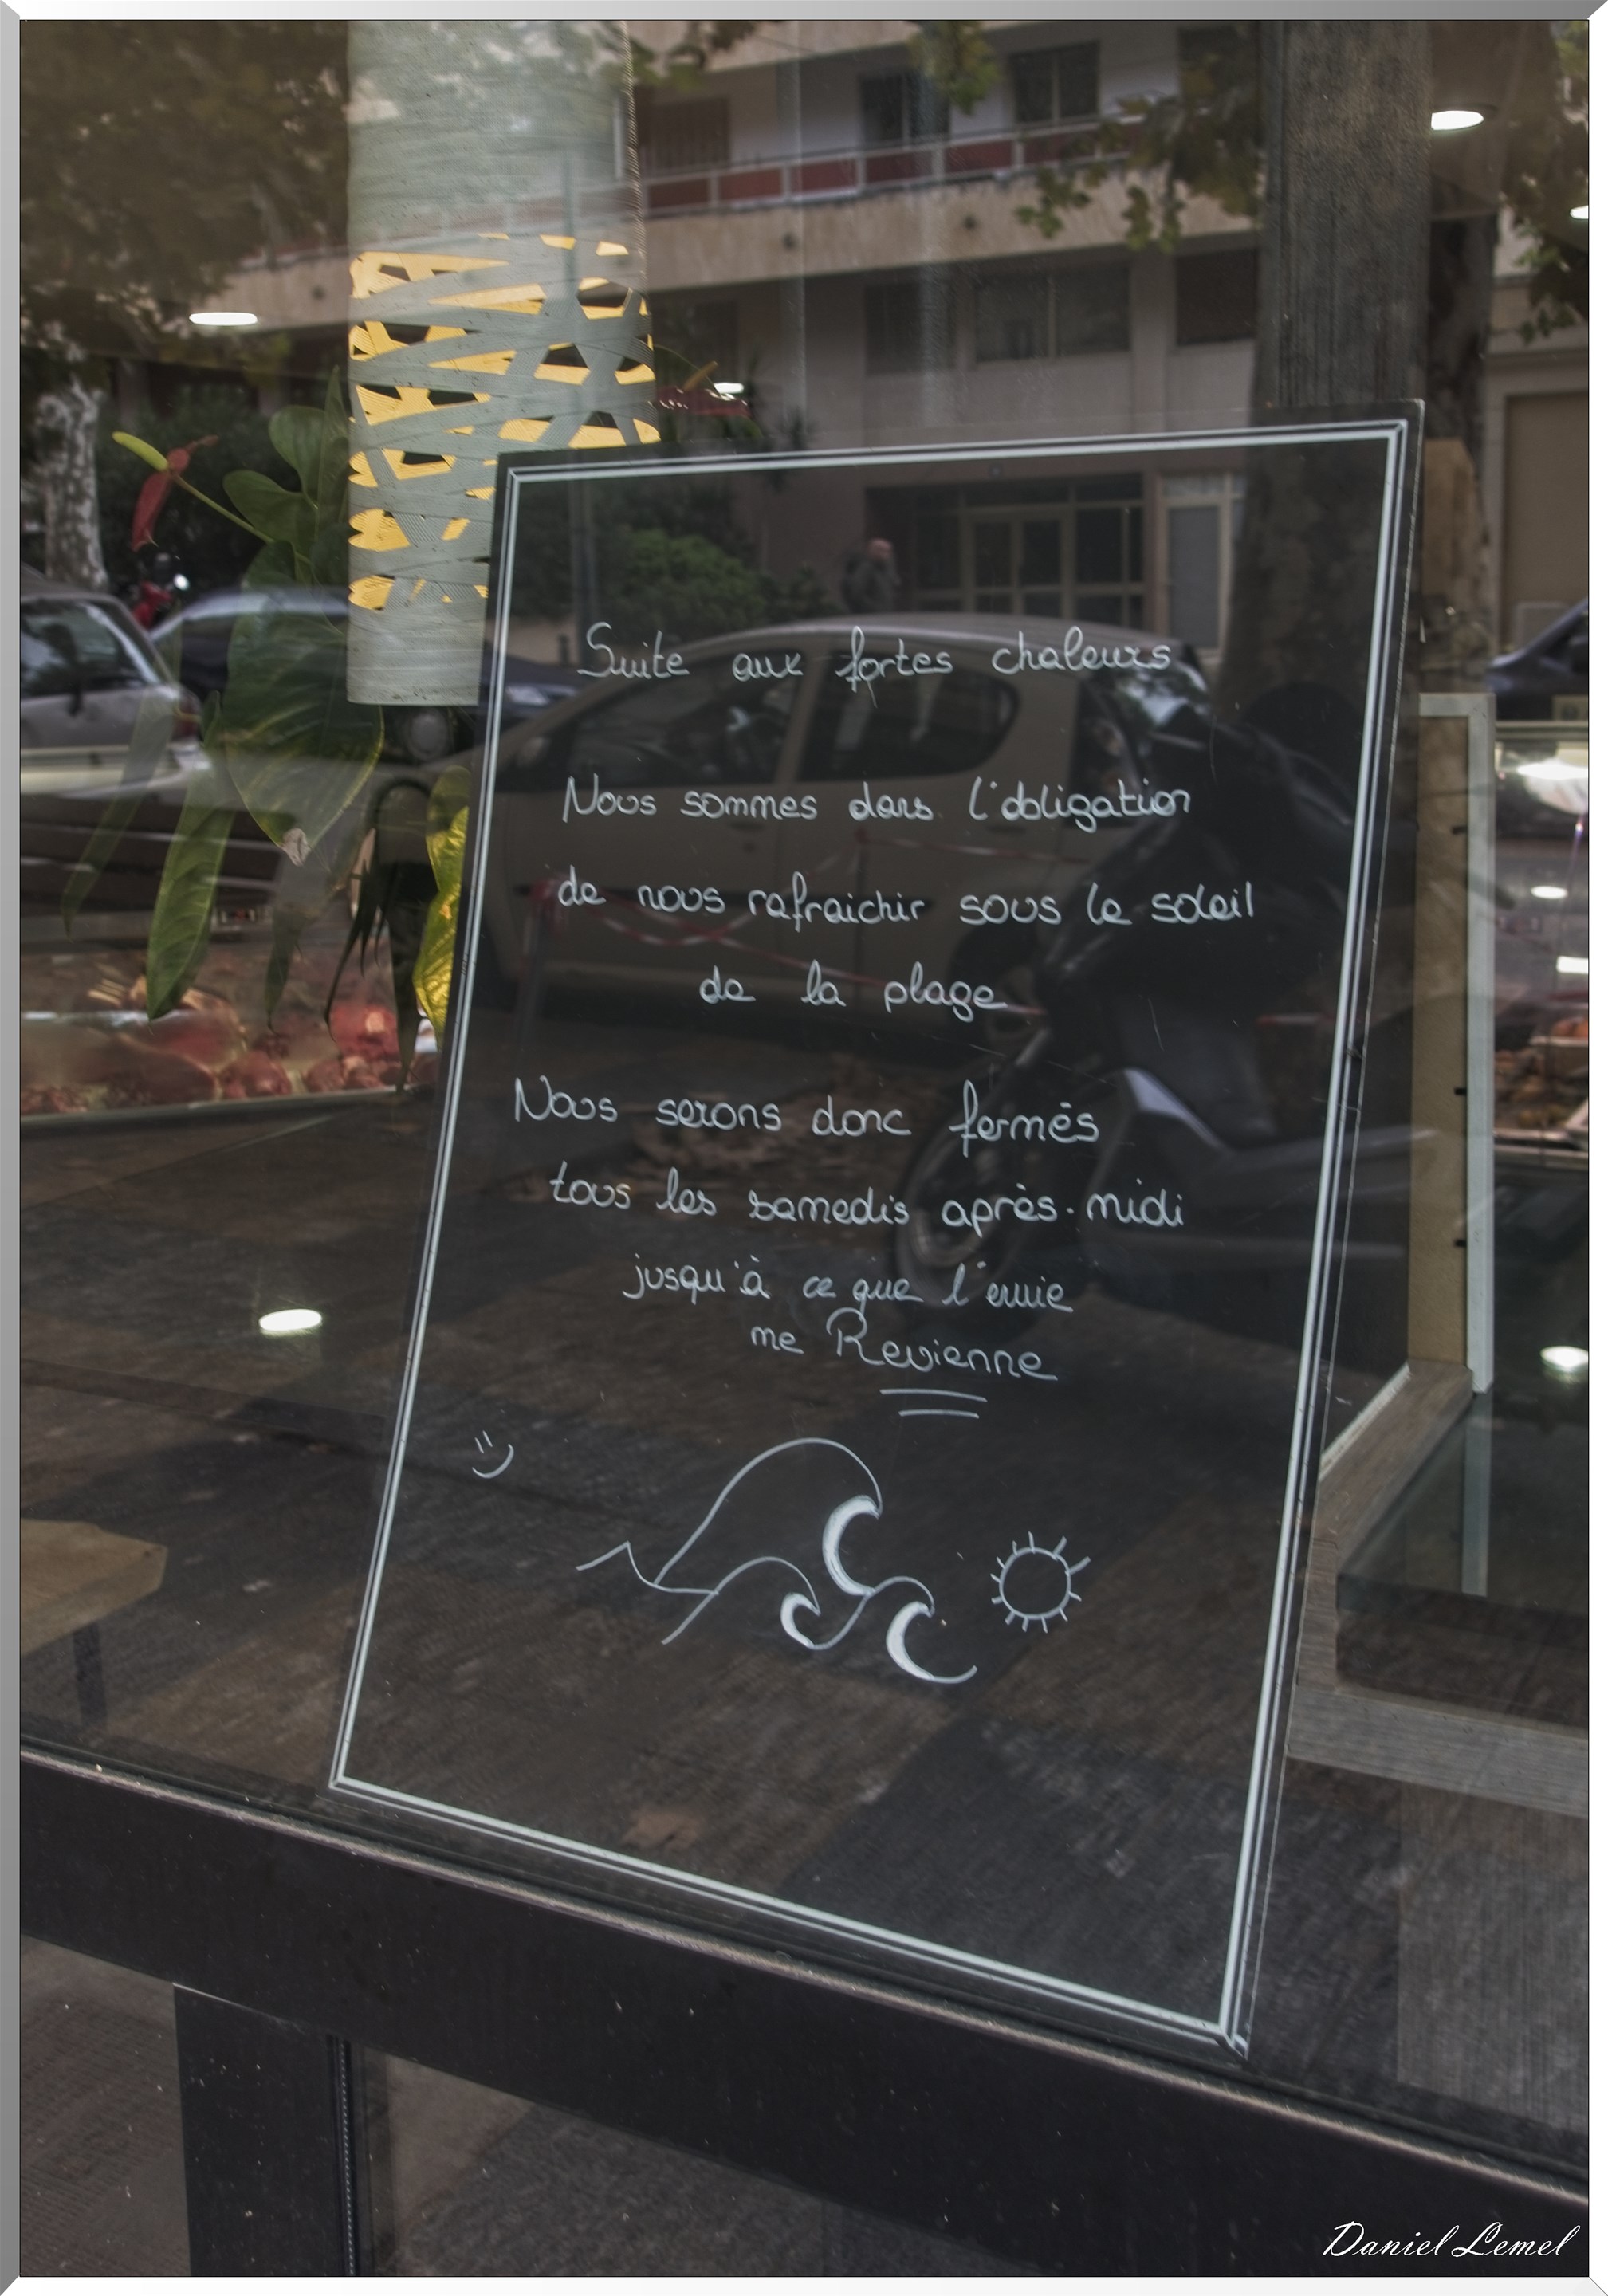 Suite aux fortes chaleurs
Nous sommes dans l'obligation
de nous rafraichir sous le soleil
de la plage
Nous serons donc fermés
tous les samedis après-midi
jusqu'à ce que l'envie
me Revienne
Daniel Lemel